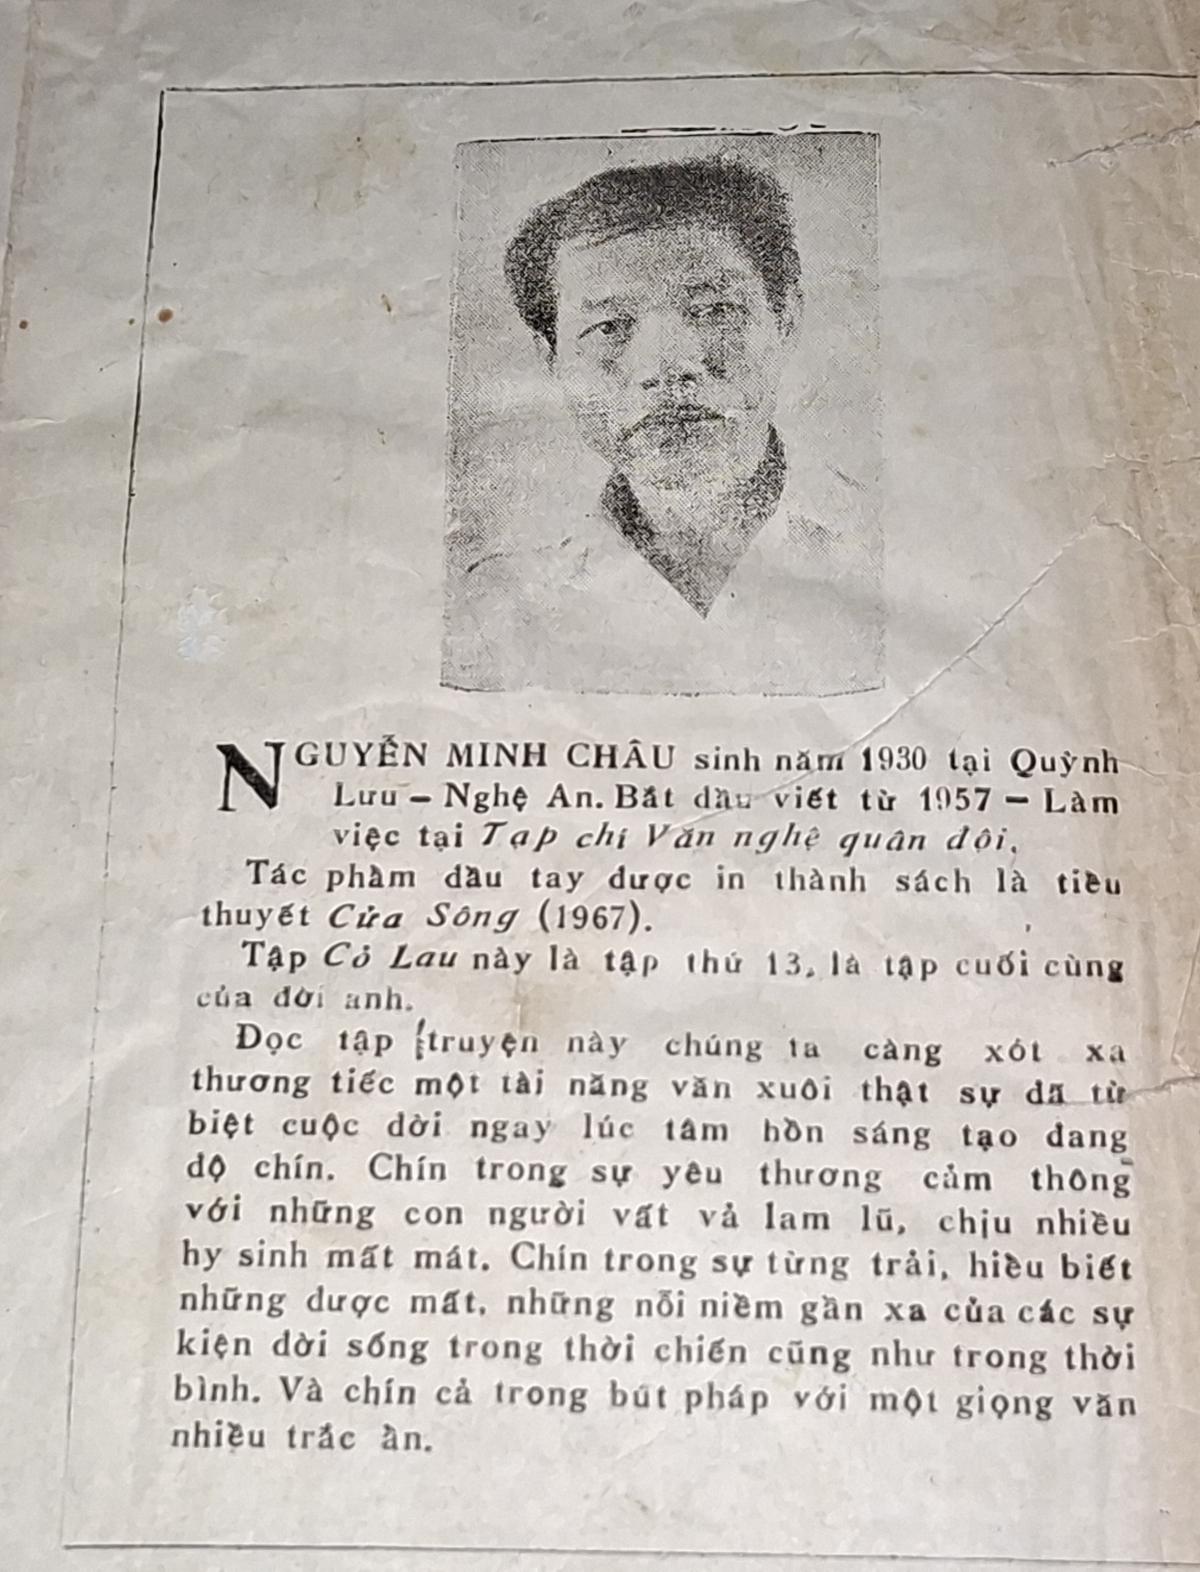 NGUYỄN MINH CHÂU sinh năm 1930 tại Quỳnh
Lưu – Nghệ An. Bắt đầu viết từ 1957 – Làm
việc tại Tạp chí Văn nghệ quân đội.
Tác phầm đầu tay được in thành sách là tiều
thuyết Cửa Sông (1967).
Tập Cỏ Lau này là tập thứ 13, là tập cuối cùng
của đời anh.
Đọc tập truyện này chúng ta càng xót xa
thương tiếc một tài năng văn xuôi thật sự đã từ
biệt cuộc đời ngay lúc tâm hồn sáng tạo đang
độ chín. Chín trong sự yêu thương cảm thông
với những con người vất vả lam lũ, chịu nhiều
hy sinh mất mát. Chín trong sự từng trải, hiều biết
những được mất, những nỗi niềm gần xa của các sự
kiện đời sống trong thời chiến cũng như trong thời
bình. Và chín cả trong bút pháp với một giọng văn
nhiều trắc ần.